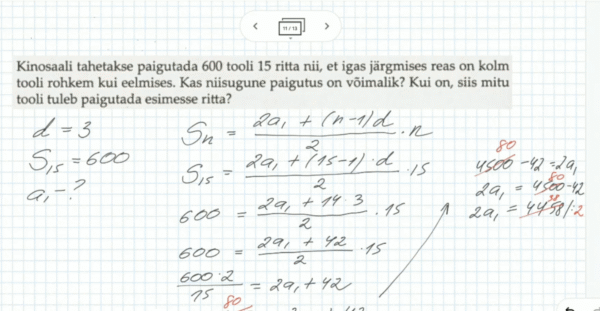 11 / 13
Kinosaali tahetakse paigutada 600 tooli 15 ritta nii, et igas järgmises reas on kolm
tooli rohkem kui eelmises. Kas niisugune paigutus on võimalik? Kui on, siis mitu
tooli tuleb paigutada esimesse ritta?
d = 3
S₁₅ = 600
a₁ - ?
Sₙ = (2a₁ + (n-1)d)/2 · n
S₁₅ = (2a₁ + (15-1)·d)/2 · 15
600 = (2a₁ + 14·3)/2 · 15
600 = (2a₁ + 42)/2 · 15
(600·2)/15 = 2a₁ + 42
80
80
4500 - 42 = 2a₁
80
2a₁ = 4500 - 42
38
2a₁ = 4458 /:2